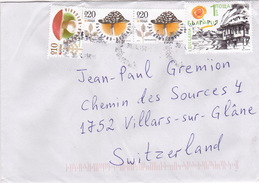 220
220
Jean-Paul Gremion
Chemin des Sources 4
1752 Villars-sur-Glâne
Switzerland